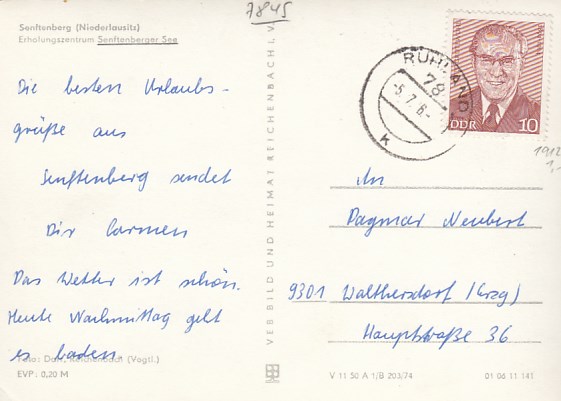 7845
Senftenberg (Niederlausitz)
Erholungszentrum Senftenberger See
Die besten Urlaubs-
grüße aus
Senftenberg sendet
Dir Carmen
Das Wetter ist schön.
Heute Nachmittag geht
es baden.
(Vogtl.)
EVP: 0,20 M
VEB BILD UND HEIMAT REICHENBACH I. V.
RUHLAND
78
-5.7.
K
DDR 10
1912
An
Dagmar Neubert
9301 Walthersdorf (Erzg)
Hauptstraße 36
V 11 50 A 1/B 203/74
01 06 11 141